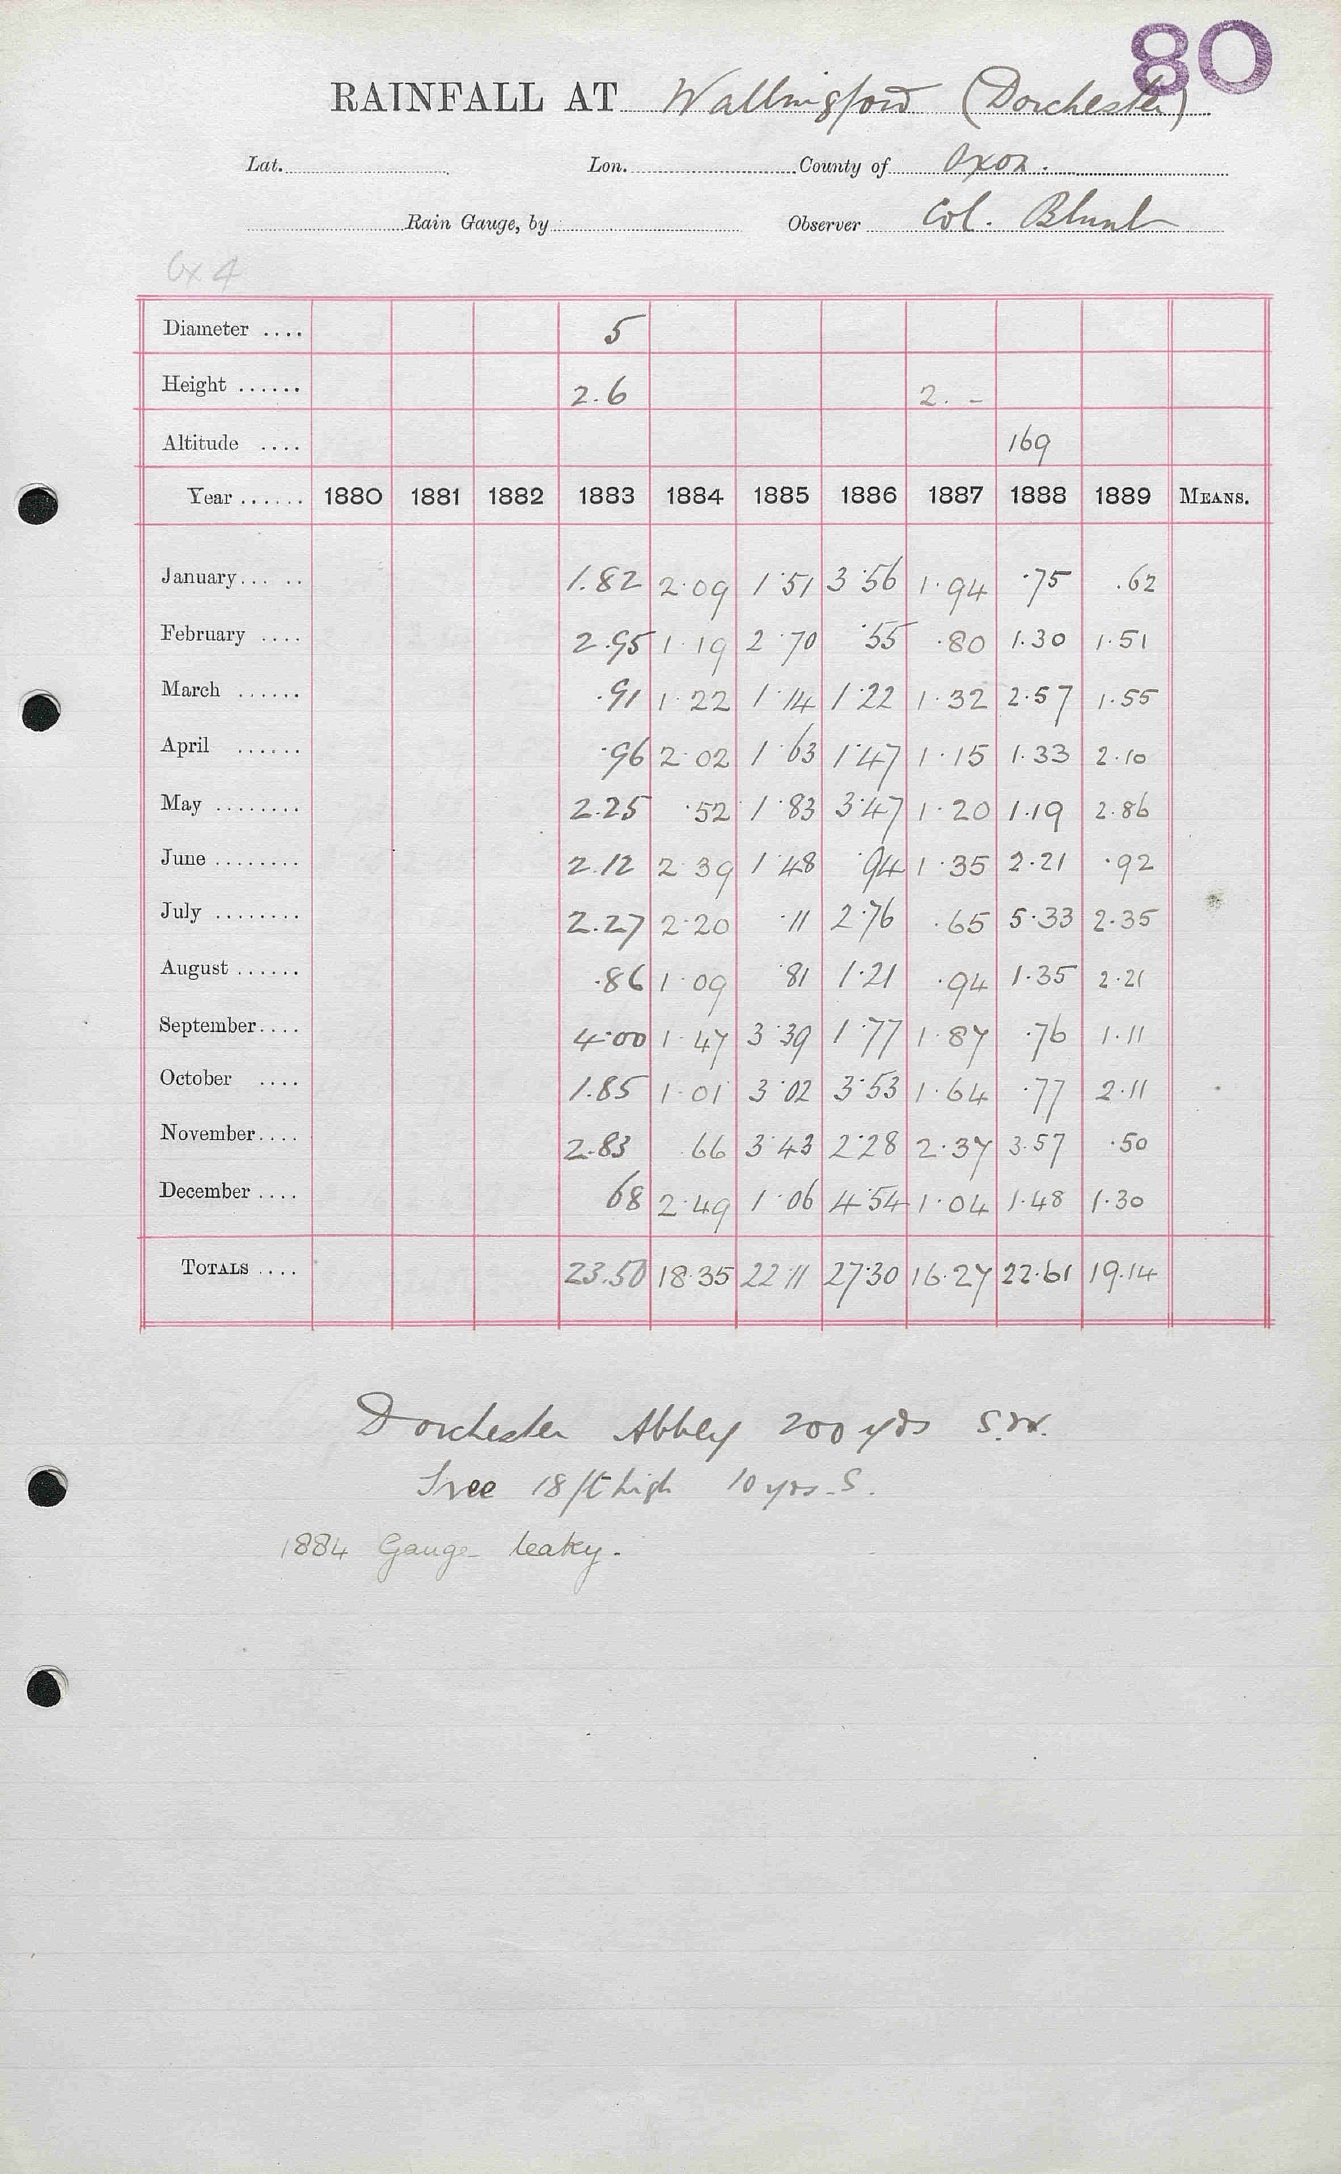 80
RAINFALL AT Wallingford (Dorchester)
Lat. Lon. County of Oxon.
Rain Gauge, by Observer Col. Blunt
Ox 4
Diameter .... 5
Height ...... 2.6 2. -
Altitude .... 169
Year ...... 1880 1881 1882 1883 1884 1885 1886 1887 1888 1889 MEANS.
January... .. 1.82 2.09 1.51 3.56 1.94 .75 .62
February .... 2.95 1.19 2.70 .55 .80 1.30 1.51
March ...... .91 1.22 1.14 1.22 1.32 2.57 1.55
April ...... .96 2.02 1.63 1.47 1.15 1.33 2.10
May ........ 2.25 .52 1.83 3.47 1.20 1.19 2.86
June ........ 2.12 2.39 1.48 .94 1.35 2.21 .92
July ........ 2.27 2.20 .11 2.76 .65 5.33 2.35
August ...... .86 1.09 .81 1.21 .94 1.35 2.21
September.... 4.00 1.47 3.39 1.77 1.87 .76 1.11
October .... 1.85 1.01 3.02 3.53 1.64 .77 2.11
November.... 2.83 .66 3.43 2.28 2.37 3.57 .50
December .... 68 2.49 1.06 4.54 1.04 1.48 1.30
TOTALS .... 23.50 18.35 22.11 27.30 16.27 22.61 19.14
Dorchester Abbey 200 yds S.W.
Tree 18 ft high 10 yds. S.
1884 Gauge leaky.